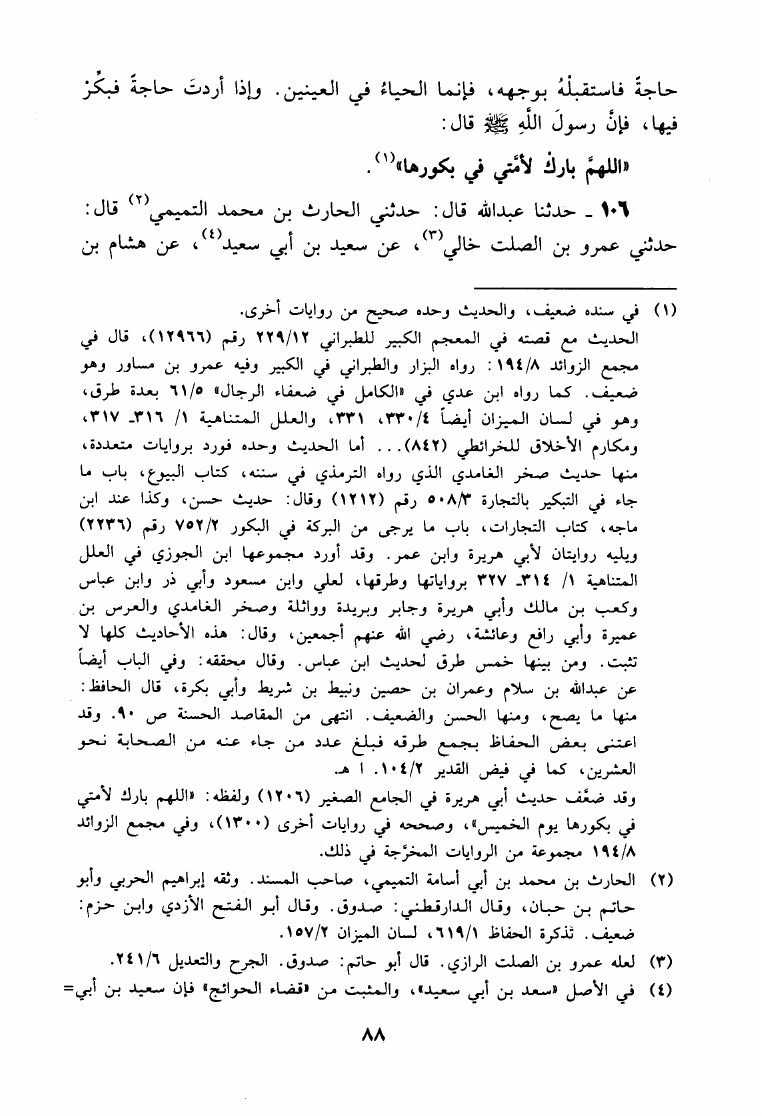 حاجةً فاستقبلْهُ بوجهه، فإنما الحياءُ في العينين. وإذا أردتَ حاجةً فبكِّرْ
فيها، فإنَّ رسولَ اللَّهِ ﷺ قال:
«اللهمَّ باركْ لأمَّتي في بكورها»(١).
١٠٦ ـ حدثنا عبدالله قال: حدثني الحارث بن محمد التميمي(٢) قال:
حدثني عمرو بن الصلت خالي(٣)، عن سعيد بن أبي سعيد(٤)، عن هشام بن
(١) في سنده ضعيف، والحديث وحده صحيح من روايات أخرى.
الحديث مع قصته في المعجم الكبير للطبراني ٢٢٩/١٢ رقم (١٢٩٦٦)، قال في
مجمع الزوائد ١٩٤/٨: رواه البزار والطبراني في الكبير وفيه عمرو بن مساور وهو
ضعيف. كما رواه ابن عدي في «الكامل في ضعفاء الرجال» ٦١/٥ بعدة طرق،
وهو في لسان الميزان أيضاً ٣٣٠/٤، ٣٣١، والعلل المتناهية ١/ ٣١٦ـ ٣١٧،
ومكارم الأخلاق للخرائطي (٨٤٢)... أما الحديث وحده فورد بروايات متعددة،
منها حديث صخر الغامدي الذي رواه الترمذي في سننه، كتاب البيوع، باب ما
جاء في التبكير بالتجارة ٥٠٨/٣ رقم (١٢١٢) وقال: حديث حسن، وكذا عند ابن
ماجه، كتاب التجارات، باب ما يرجى من البركة في البكور ٧٥٢/٢ رقم (٢٢٣٦)
ويليه روايتان لأبي هريرة وابن عمر. وقد أورد مجموعها ابن الجوزي في العلل
المتناهية ١/ ٣١٤ـ ٣٢٧ برواياتها وطرقها، لعلي وابن مسعود وأبي ذر وابن عباس
وكعب بن مالك وأبي هريرة وجابر وبريدة وواثلة وصخر الغامدي والعرس بن
عميرة وأبي رافع وعائشة، رضي الله عنهم أجمعين، وقال: هذه الأحاديث كلها لا
تثبت. ومن بينها خمس طرق لحديث ابن عباس. وقال محققه: وفي الباب أيضاً
عن عبدالله بن سلام وعمران بن حصين ونبيط بن شريط وأبي بكرة، قال الحافظ:
منها ما يصح، ومنها الحسن والضعيف. انتهى من المقاصد الحسنة ص ٩٠. وقد
اعتنى بعض الحفاظ بجمع طرقه فبلغ عدد من جاء عنه من الصحابة نحو
العشرين، كما في فيض القدير ١٠٤/٢. ا هـ.
وقد ضعَّف حديث أبي هريرة في الجامع الصغير (١٢٠٦) ولفظه: «اللهم بارك لأمتي
في بكورها يوم الخميس»، وصححه في روايات أخرى (١٣٠٠)، وفي مجمع الزوائد
١٩٤/٨ مجموعة من الروايات المخرَّجة في ذلك.
(٢) الحارث بن محمد بن أبي أسامة التميمي، صاحب المسند. وثقه إبراهيم الحربي وأبو
حاتم بن حبان، وقال الدارقطني: صدوق. وقال أبو الفتح الأزدي وابن حزم:
ضعيف. تذكرة الحفاظ ٦١٩/١، لسان الميزان ١٥٧/٢.
(٣) لعله عمرو بن الصلت الرازي. قال أبو حاتم: صدوق. الجرح والتعديل ٢٤١/٦.
(٤) في الأصل «سعد بن أبي سعيد»، والمثبت من «قضاء الحوائج» فإن سعيد بن أبي=
٨٨